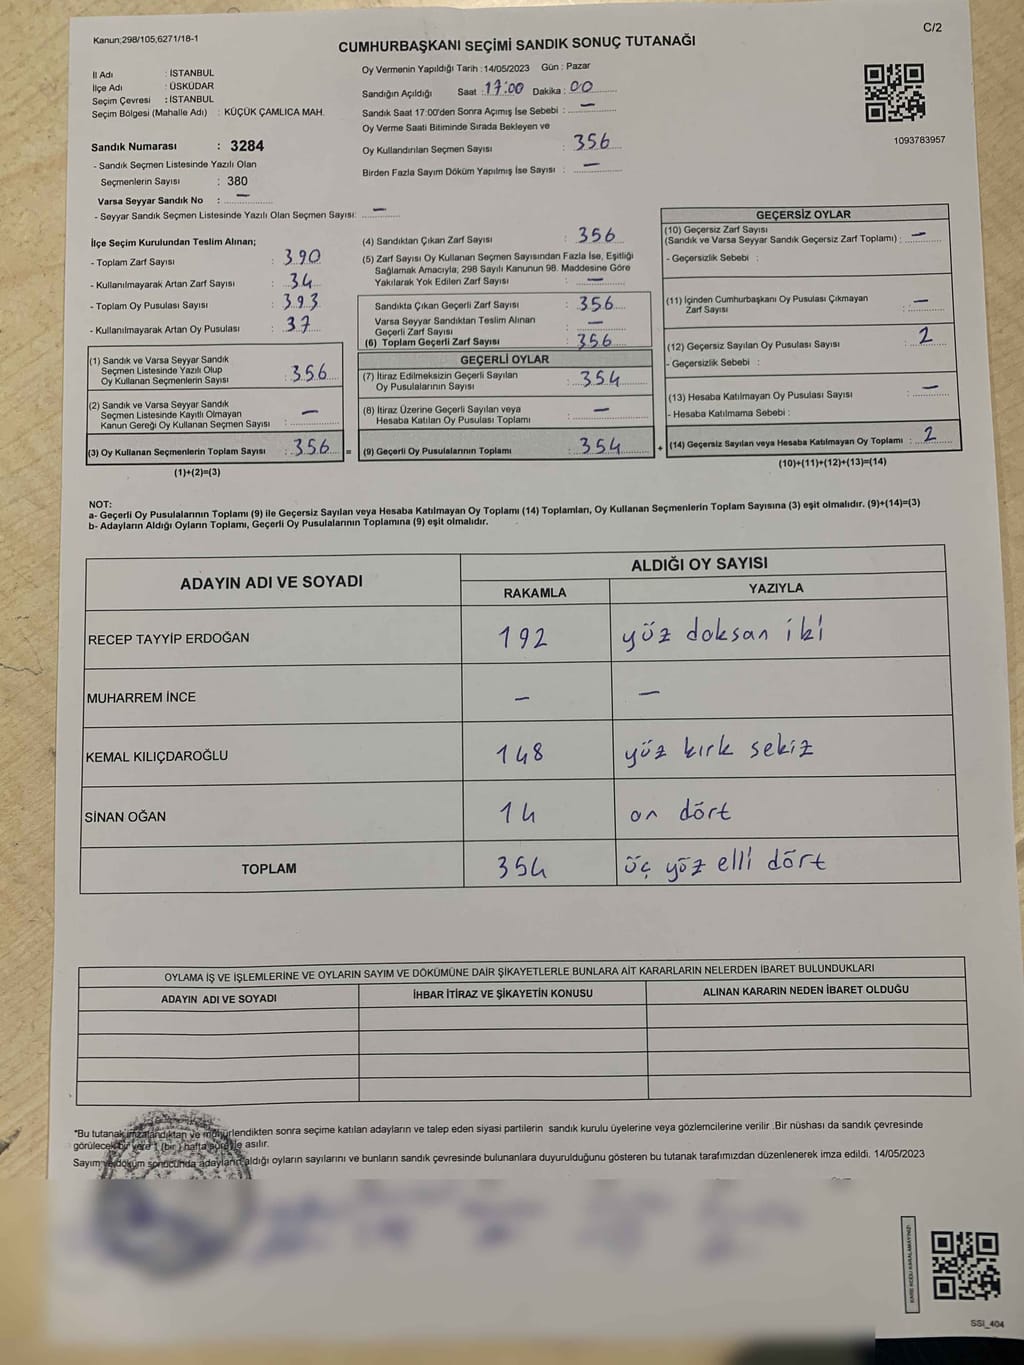 Kanun;298/105;6271/18-1
C/2
CUMHURBAŞKANI SEÇİMİ SANDIK SONUÇ TUTANAĞI
İl Adı : İSTANBUL
İlçe Adı : ÜSKÜDAR
Seçim Çevresi : İSTANBUL
Seçim Bölgesi (Mahalle Adı) : KÜÇÜK ÇAMLICA MAH.
Sandık Numarası : 3284
- Sandık Seçmen Listesinde Yazılı Olan
Seçmenlerin Sayısı : 380
Varsa Seyyar Sandık No : —
- Seyyar Sandık Seçmen Listesinde Yazılı Olan Seçmen Sayısı: —
Oy Vermenin Yapıldığı Tarih :14/05/2023 Gün : Pazar
Sandığın Açıldığı Saat : 17:00 Dakika : 00
Sandık Saat 17:00'den Sonra Açımış İse Sebebi : —
Oy Verme Saati Bitiminde Sırada Bekleyen ve
Oy Kullandırılan Seçmen Sayısı : 356
Birden Fazla Sayım Döküm Yapılmış İse Sayısı : —
1093783957
İlçe Seçim Kurulundan Teslim Alınan;
- Toplam Zarf Sayısı : 390
- Kullanılmayarak Artan Zarf Sayısı : 34
- Toplam Oy Pusulası Sayısı : 393
- Kullanılmayarak Artan Oy Pusulası : 37
(1) Sandık ve Varsa Seyyar Sandık
Seçmen Listesinde Yazılı Olup
Oy Kullanan Seçmenlerin Sayısı : 356
(2) Sandık ve Varsa Seyyar Sandık
Seçmen Listesinde Kayıtlı Olmayan
Kanun Gereği Oy Kullanan Seçmen Sayısı : —
(3) Oy Kullanan Seçmenlerin Toplam Sayısı : 356 =
(1)+(2)=(3)
(4) Sandıktan Çıkan Zarf Sayısı : 356
(5) Zarf Sayısı Oy Kullanan Seçmen Sayısından Fazla İse, Eşitliği
Sağlamak Amacıyla; 298 Sayılı Kanunun 98. Maddesine Göre
Yakılarak Yok Edilen Zarf Sayısı : —
Sandıkta Çıkan Geçerli Zarf Sayısı : 356
Varsa Seyyar Sandıktan Teslim Alınan
Geçerli Zarf Sayısı : —
(6) Toplam Geçerli Zarf Sayısı : 356
GEÇERLİ OYLAR
(7) İtiraz Edilmeksizin Geçerli Sayılan
Oy Pusulalarının Sayısı : 354
(8) İtiraz Üzerine Geçerli Sayılan veya
Hesaba Katılan Oy Pusulası Toplamı : —
(9) Geçerli Oy Pusulalarının Toplamı : 354 +
GEÇERSİZ OYLAR
(10) Geçersiz Zarf Sayısı
(Sandık ve Varsa Seyyar Sandık Geçersiz Zarf Toplamı) : —
- Geçersizlik Sebebi :
(11) İçinden Cumhurbaşkanı Oy Pusulası Çıkmayan
Zarf Sayısı : —
(12) Geçersiz Sayılan Oy Pusulası Sayısı : 2
- Geçersizlik Sebebi :
(13) Hesaba Katılmayan Oy Pusulası Sayısı : —
- Hesaba Katılmama Sebebi :
(14) Geçersiz Sayılan veya Hesaba Katılmayan Oy Toplamı : 2
(10)+(11)+(12)+(13)=(14)
NOT:
a- Geçerli Oy Pusulalarının Toplamı (9) ile Geçersiz Sayılan veya Hesaba Katılmayan Oy Toplamı (14) Toplamları, Oy Kullanan Seçmenlerin Toplam Sayısına (3) eşit olmalıdır. (9)+(14)=(3)
b- Adayların Aldığı Oyların Toplamı, Geçerli Oy Pusulalarının Toplamına (9) eşit olmalıdır.
ADAYIN ADI VE SOYADI
ALDIĞI OY SAYISI
RAKAMLA YAZIYLA
RECEP TAYYİP ERDOĞAN 192 yüz doksan iki
MUHARREM İNCE — —
KEMAL KILIÇDAROĞLU 148 yüz kırk sekiz
SİNAN OĞAN 14 on dört
TOPLAM 354 üç yüz elli dört
OYLAMA İŞ VE İŞLEMLERİNE VE OYLARIN SAYIM VE DÖKÜMÜNE DAİR ŞİKAYETLERLE BUNLARA AİT KARARLARIN NELERDEN İBARET BULUNDUKLARI
ADAYIN ADI VE SOYADI İHBAR İTİRAZ VE ŞİKAYETİN KONUSU ALINAN KARARIN NEDEN İBARET OLDUĞU
*Bu tutanak imzalandıktan ve mühürlendikten sonra seçime katılan adayların ve talep eden siyasi partilerin sandık kurulu üyelerine veya gözlemcilerine verilir .Bir nüshası da sandık çevresinde
görülecek bir yere 1 (bir) hafta süreyle asılır.
Sayım ve döküm sonucunda adayların aldığı oyların sayılarını ve bunların sandık çevresinde bulunanlara duyurulduğunu gösteren bu tutanak tarafımızdan düzenlenerek imza edildi. 14/05/2023
KARE KODU KARALAMAYINIZ!
SSI_404